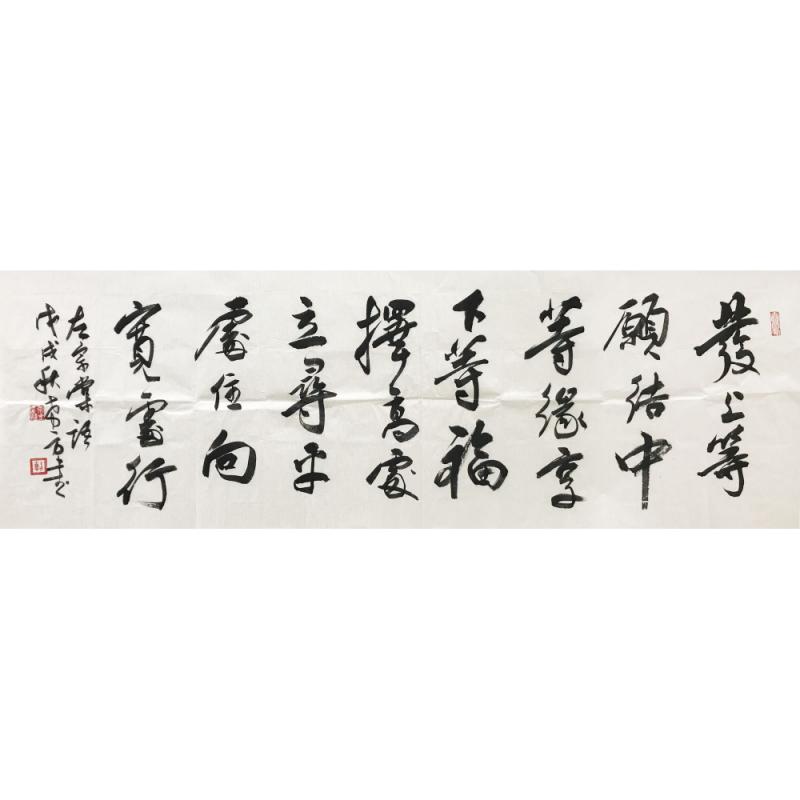 發上等
願結中
等緣享
下等福
擇高處
立尋平
處住向
寬處行
左宗棠語
戊戌秋